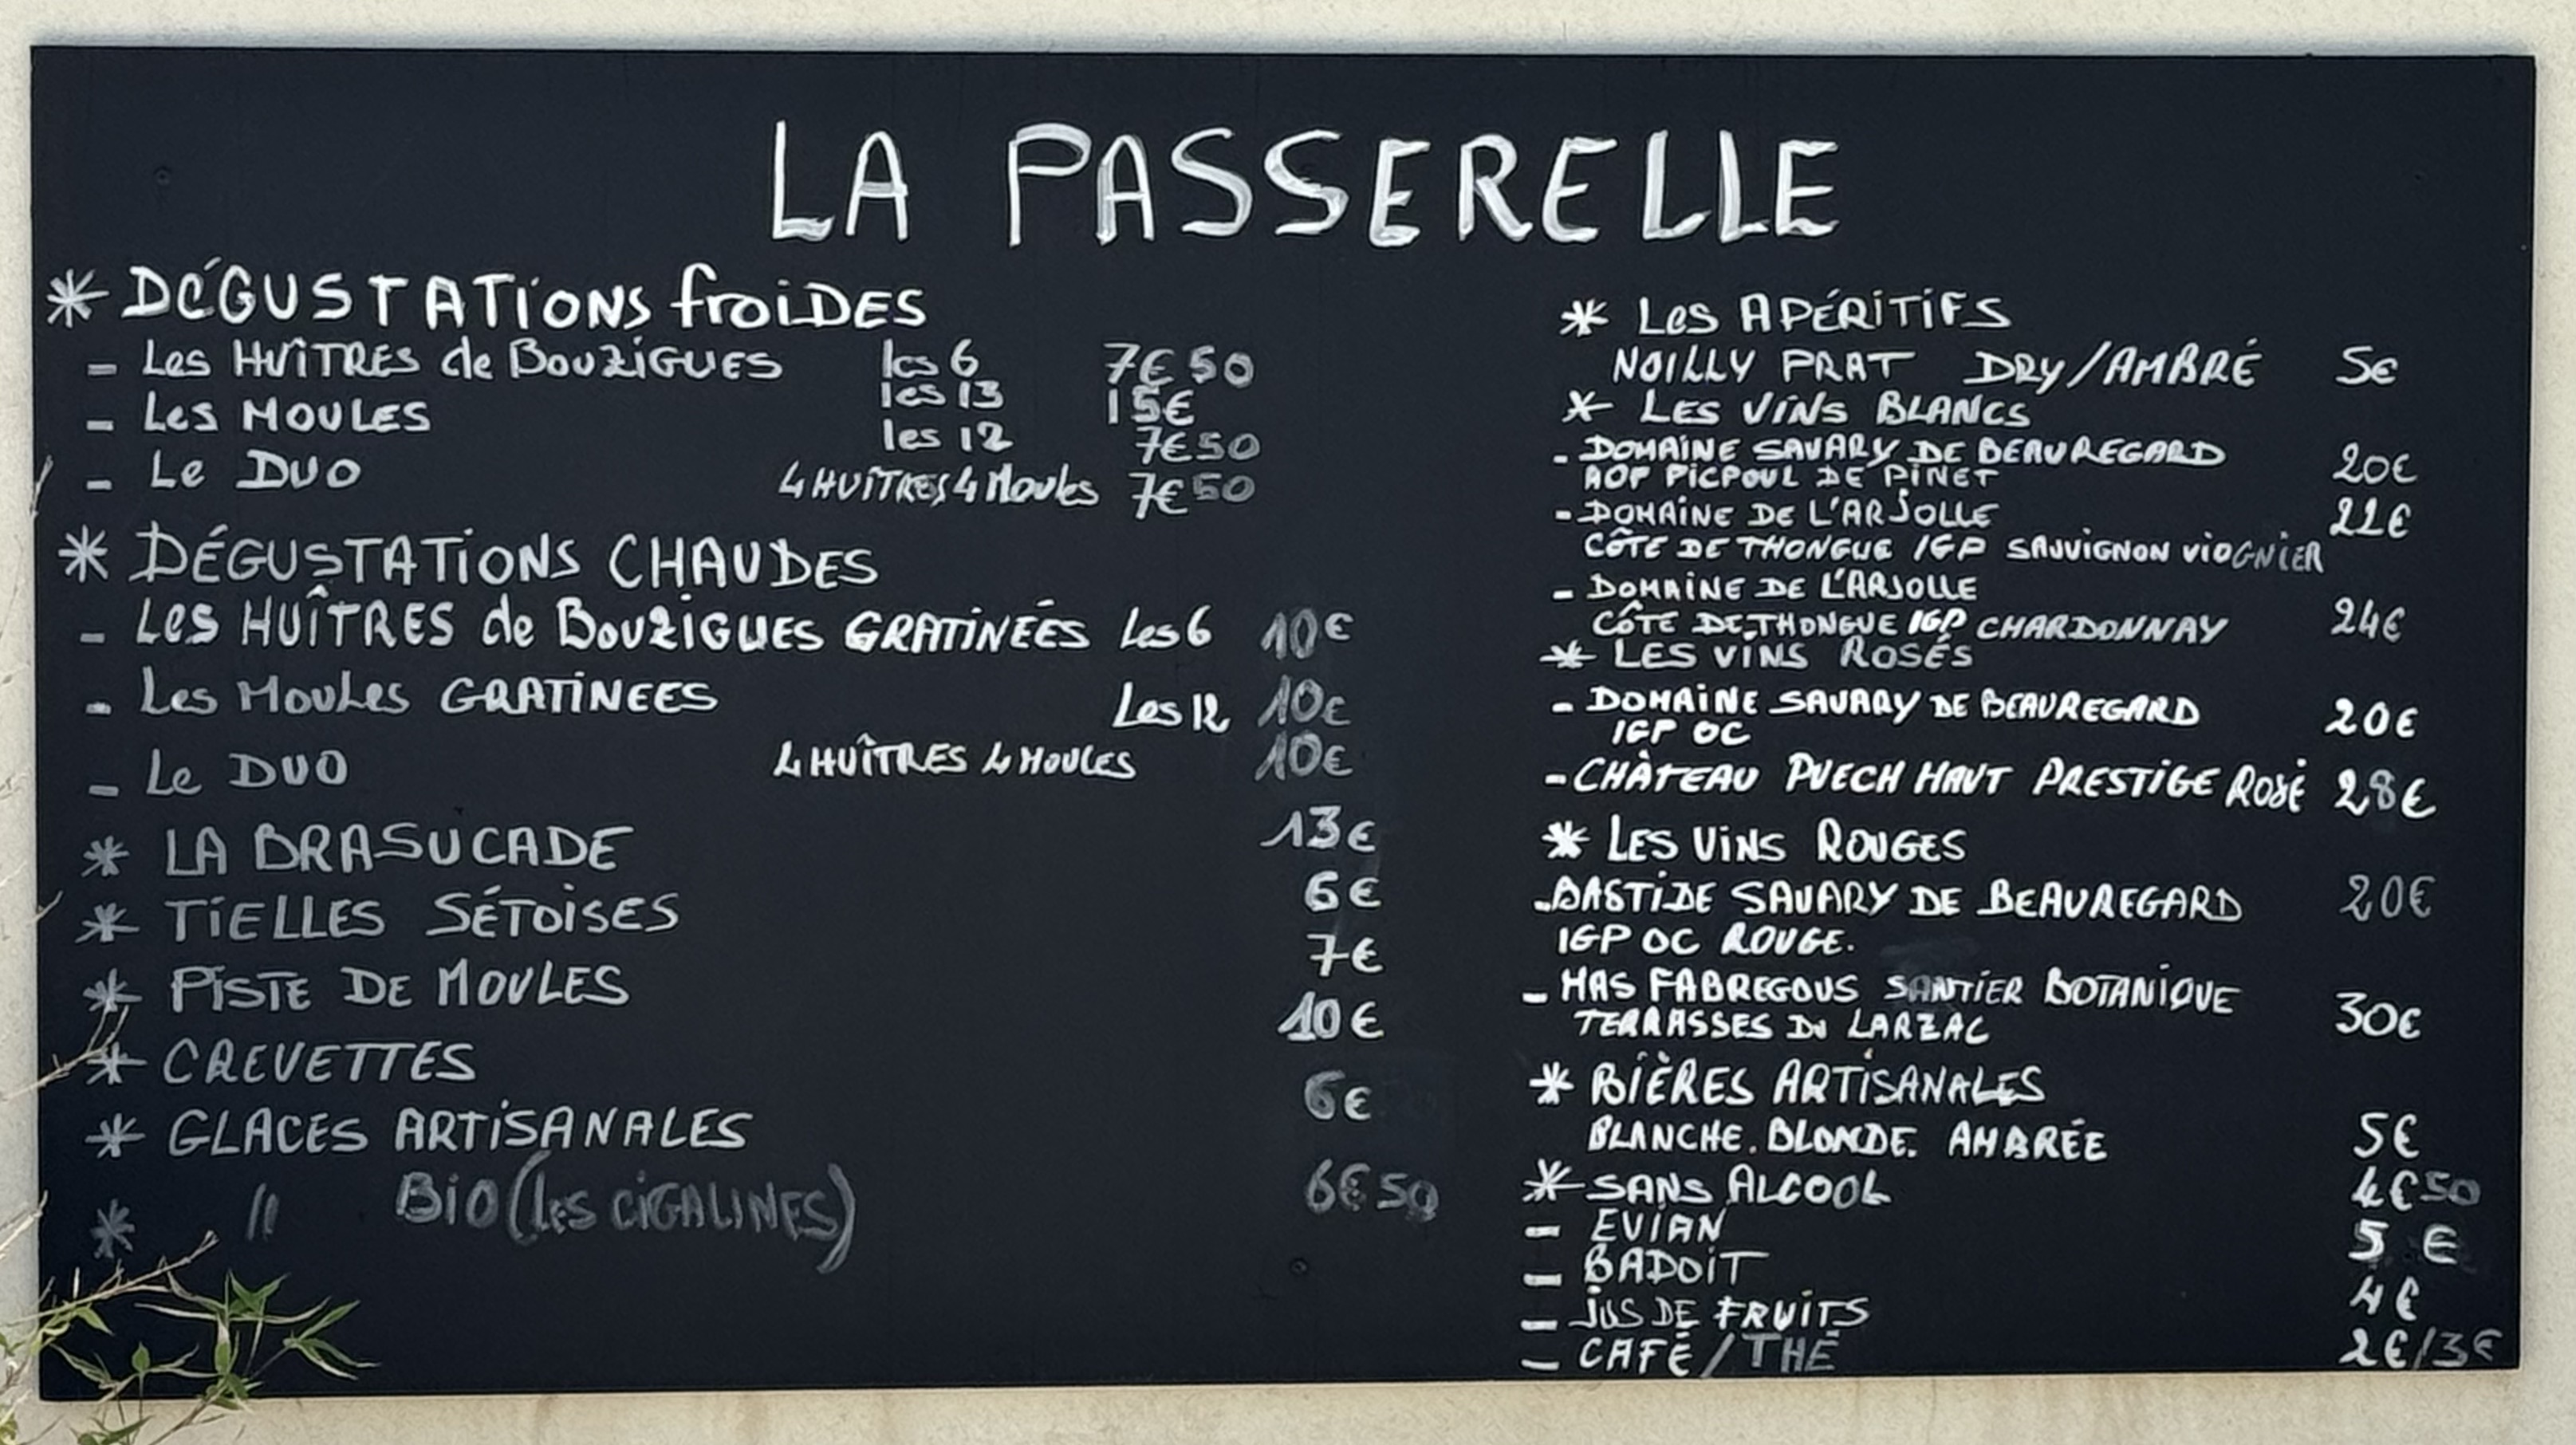 LA PASSERELLE
* DÉGUSTATIONS froiDES
- Les HUÎTRES de BOUZIGUES les 6 7€50
les 13 15€
- Les MOULES les 12 7€50
- Le DUO 4 HUÎTRES 4 Moules 7€50
* DÉGUSTATIONS CHAUDES
- Les HUÎTRES de BOUZIGUES GRATINÉES Les 6 10€
- Les Moules GRATINEES Les 12 10€
- Le DUO 4 HUÎTRES 4 MOULES 10€
* LA BRASUCADE 13€
* TIELLES SÉTOISES 6€
* PISTE DE MOULES 7€
* CREVETTES 10€
* GLACES ARTISANALES 6€
* " BIO (les CIGALINES) 6€50
* Les APÉRITIFS
NOILLY PRAT DRY/AMBRÉ 5€
* LES VINS BLANCS
- DOMAINE SAVARY DE BEAUREGARD 20€
AOP PICPOUL DE PINET
- DOMAINE DE L'ARJOLLE 22€
CÔTE DE THONGUE IGP SAUVIGNON VIOGNIER
- DOMAINE DE L'ARJOLLE
CÔTE DE THONGUE IGP CHARDONNAY 24€
* LES VINS ROSÉS
- DOMAINE SAVARY DE BEAUREGARD 20€
IGP OC
- CHÂTEAU PUECH HAUT PRESTIGE ROSÉ 28€
* LES VINS ROUGES
- BASTIDE SAVARY DE BEAUREGARD 20€
IGP OC ROUGE.
- MAS FABREGOUS SANTIER BOTANIQUE 30€
TERRASSES DU LARZAC
* BIÈRES ARTISANALES
BLANCHE. BLONDE. AMBRÉE 5€
* SANS ALCOOL
- EVIAN 4€50
- BADOIT 5 €
- JUS DE FRUITS 4€
- CAFÉ/THÉ 2€/3€